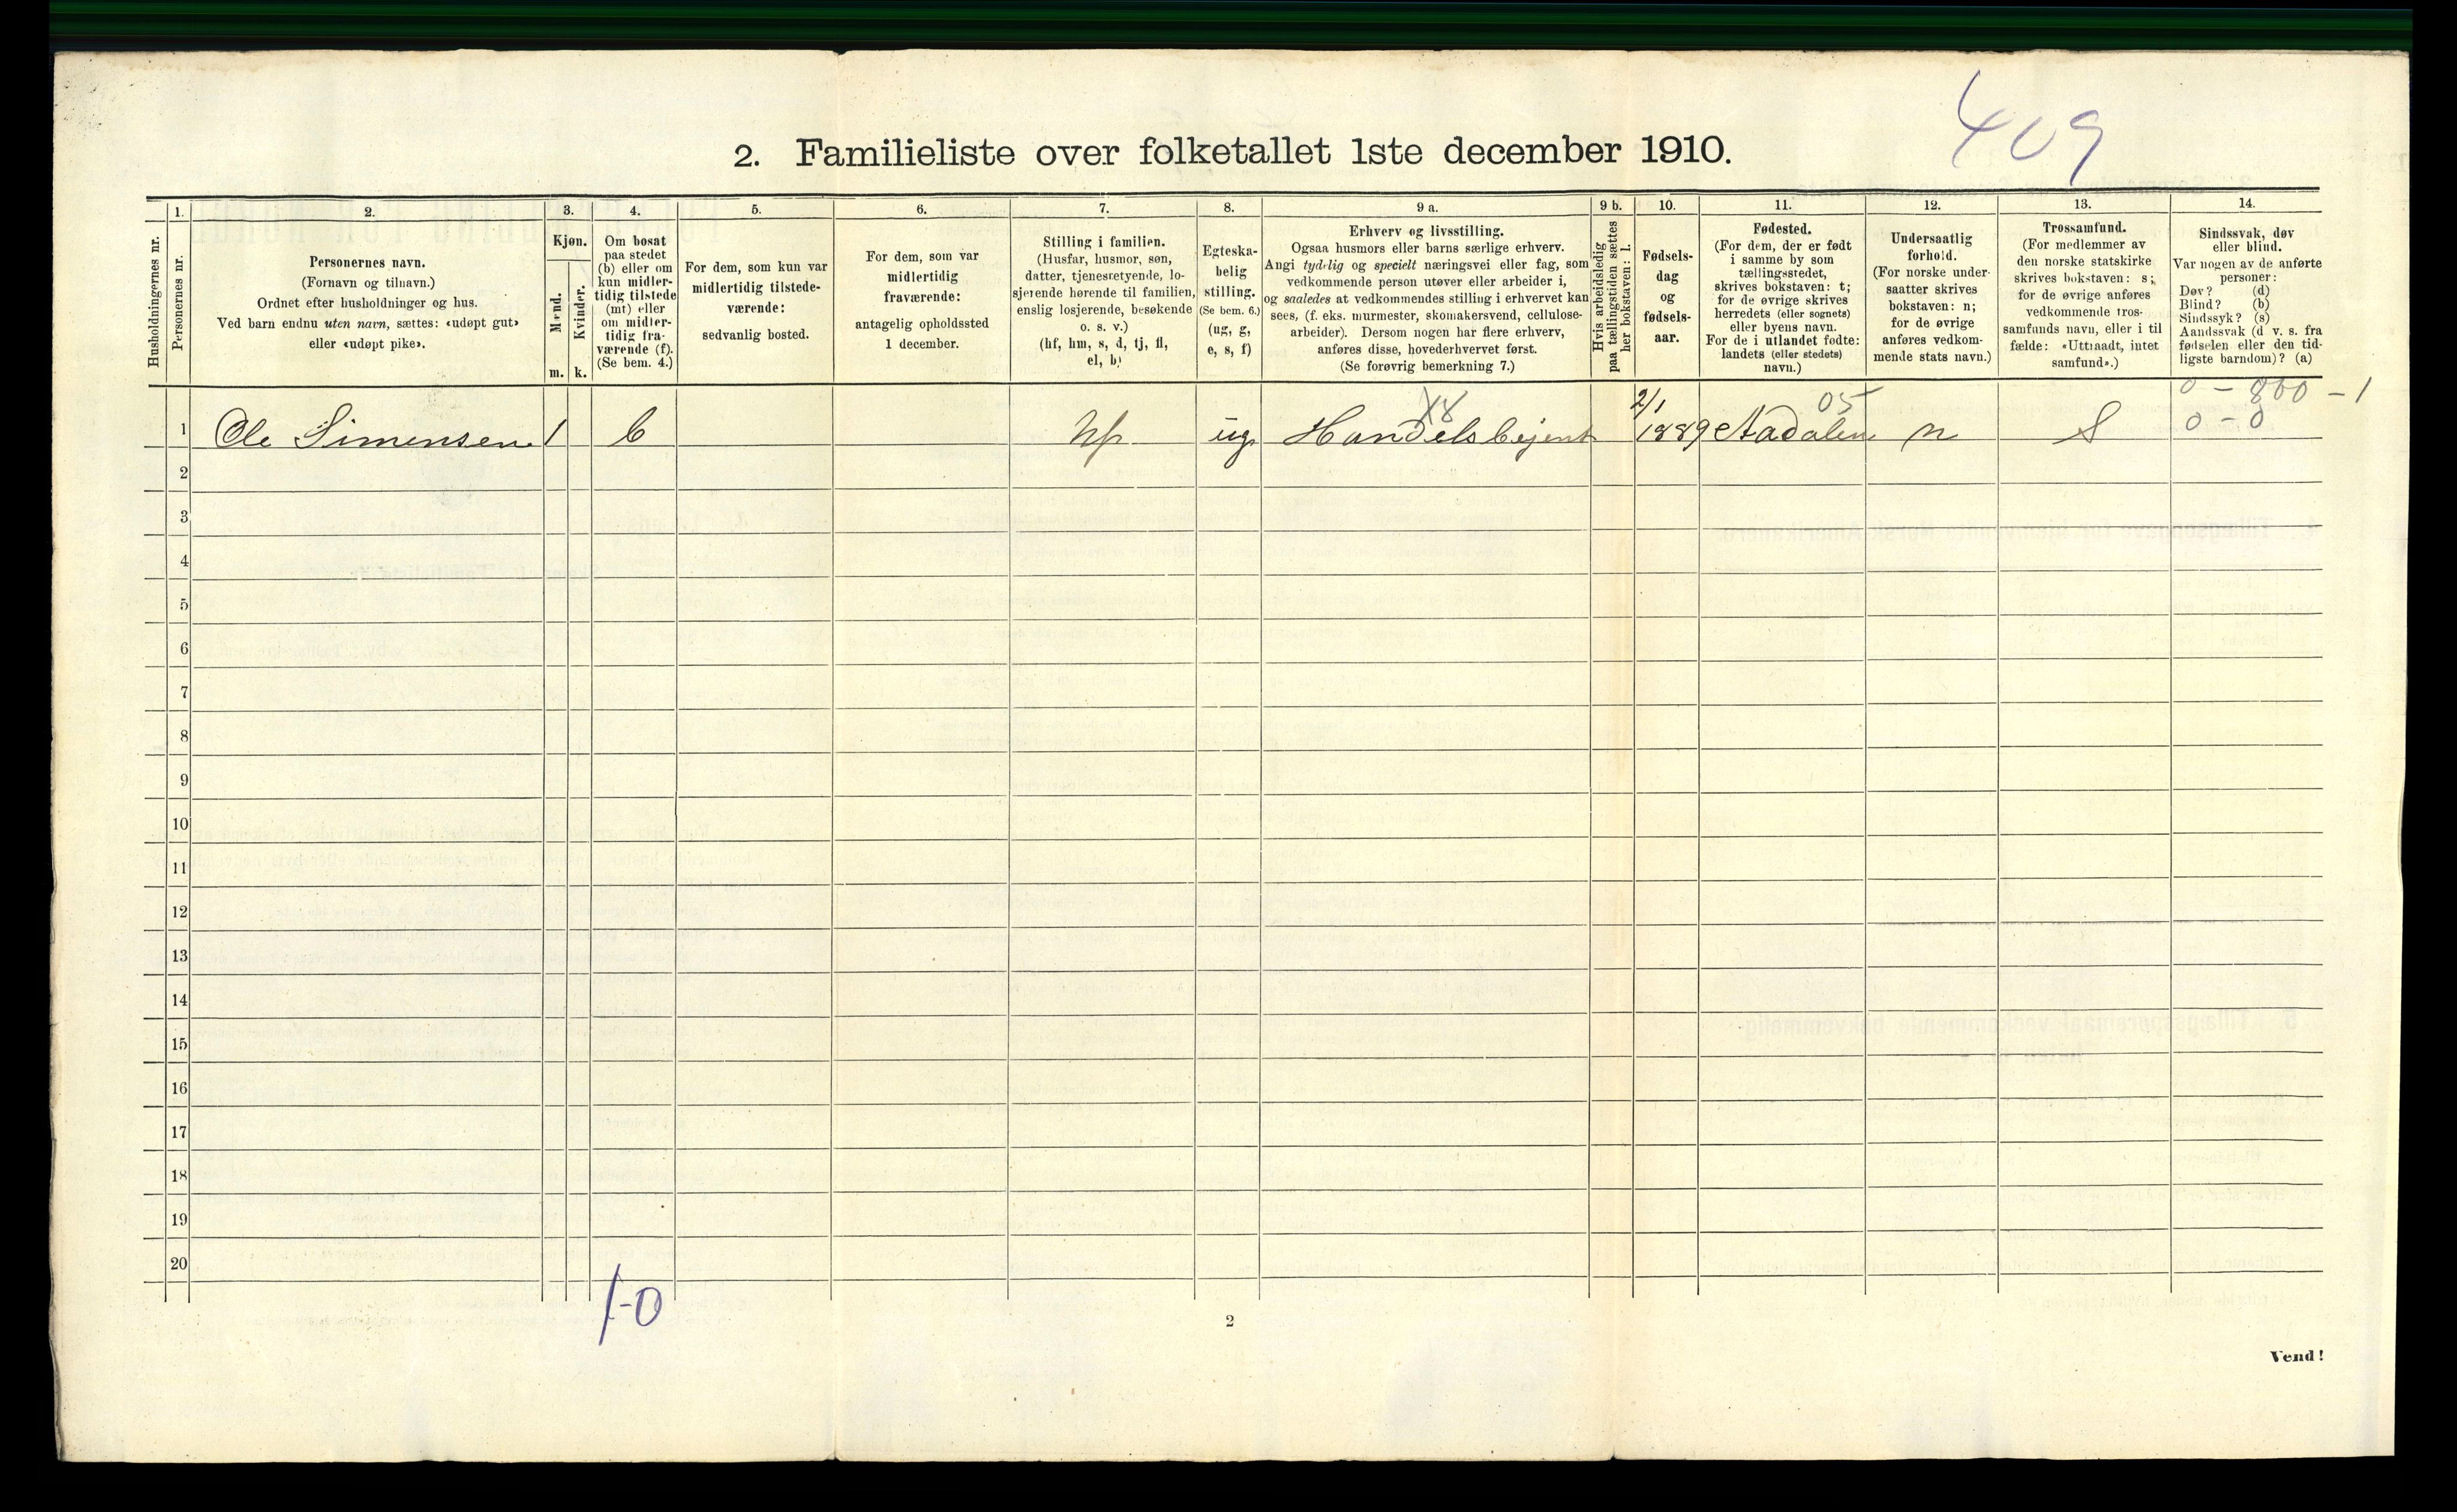 409
2. Familieliste over folketallet 1ste december 1910.
Husholdningernes nr.
1.
Personernes nr.
2.
Personernes navn.
(Fornavn og tilnavn.)
Ordnet efter husholdninger og hus.
Ved barn endnu uten navn, sættes: «udøpt gut»
eller «udøpt pike».
3.
Kjøn.
Mænd.
Kvinder.
m. k.
4.
Om bosat
paa stedet
(b) eller om
kun midler-
tidig tilstede
(mt) eller
om midler-
tidig fra-
værende (f).
(Se bem. 4.)
5.
For dem, som kun var
midlertidig tilstede-
værende:
sedvanlig bosted.
6.
For dem, som var
midlertidig
fraværende:
antagelig opholdssted
1 december.
7.
Stilling i familien.
(Husfar, husmor, søn,
datter, tjenestetyende, lo-
sjerende hørende til familien,
enslig losjerende, besøkende
o. s. v.)
(hf, hm, s, d, tj, fl,
el, b)
8.
Egteska-
belig
stilling.
(Se bem. 6.)
(ug, g,
e, s, f)
9 a.
Erhverv og livsstilling.
Ogsaa husmors eller barns særlige erhverv.
Angi tydelig og specielt næringsvei eller fag, som
vedkommende person utøver eller arbeider i,
og saaledes at vedkommendes stilling i erhvervet kan
sees, (f. eks. murmester, skomakersvend, cellulose-
arbeider). Dersom nogen har flere erhverv,
anføres disse, hovederhvervet først.
(Se forøvrig bemerkning 7.)
9 b.
Hvis arbeidsledig
paa tællingstiden sættes
her bokstaven: l.
10.
Fødsels-
dag
og
fødsels-
aar.
11.
Fødested.
(For dem, der er født
i samme by som
tællingsstedet,
skrives bokstaven: t;
for de øvrige skrives
herredets (eller sognets)
eller byens navn.
For de i utlandet fødte:
landets (eller stedets)
navn.)
12.
Undersaatlig
forhold.
(For norske under-
saatter skrives
bokstaven: n;
for de øvrige
anføres vedkom-
mende stats navn.)
13.
Trossamfund.
(For medlemmer av
den norske statskirke
skrives bokstaven: s;
for de øvrige anføres
vedkommende tros-
samfunds navn, eller i til
fælde: «Uttraadt, intet
samfund».)
14.
Sindssvak, døv
eller blind.
Var nogen av de anførte
personer:
Døv? (d)
Blind? (b)
Sindssyk? (s)
Aandssvak (d v. s. fra
fødselen eller den tid-
ligste barndom)? (a)
X8 2/1 05 0 - 800 - 1
1 Ole Simensen 1 b hf ug Handelsbejent 1889 Aadalen n S 0 - 0
2
3
4
5
6
7
8
9
10
11
12
13
14
15
16
17
18
19
20
1-0
2
Vend!